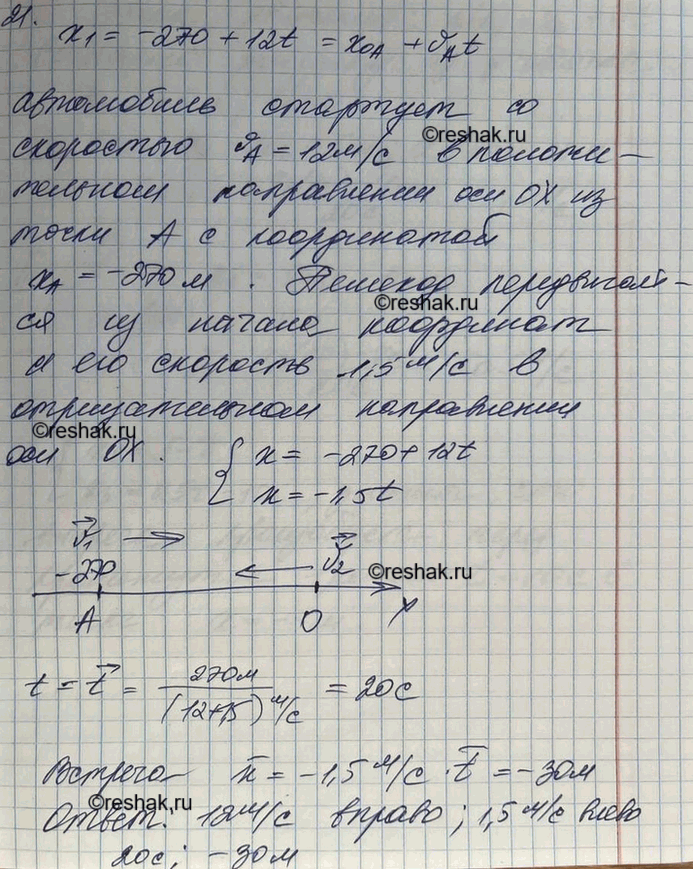 21.
x₁ = -270 + 12t = x₀A + υAt
автомобиль стартует со
©reshak.ru
скоростью υA = 12м/с в положи-
тельном направлении оси OX из
точки A с координатой
xA = -270 м. Пешеход передвигал-
©reshak.ru
ся из начала координат
и его скорость 1,5 м/с в
отрицательном направлении
©reshak.ru
оси OX. { x = -270 + 12t
x = -1,5t
υ⃗₁ υ⃗₂
-270 ©reshak.ru
A O X
t = t⃗ = 270м / (12+1,5) м/с = 20с
Встреча x̄ = -1,5 м/с · t̄ = -30м
©reshak.ru
Ответ: 12м/с вправо; 1,5 м/с влево
20с; -30м